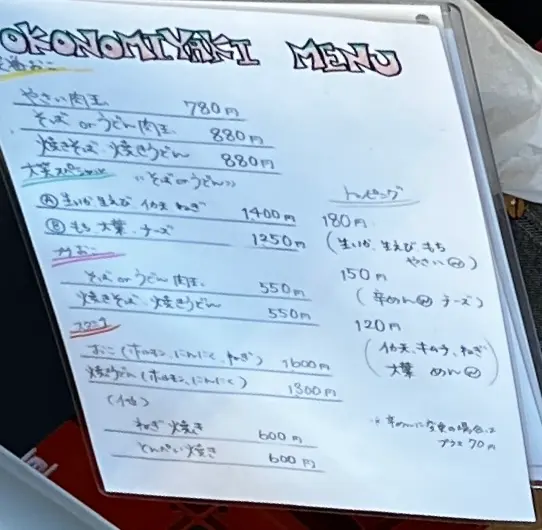 OKONOMIYAKI MENU
おこ
やさい肉玉 780円
そば or うどん肉玉 880円
焼きそば 焼きうどん 880円
大葉スペシャル 《そば or うどん》
Ⓐ 生いか 生えび イカ天 ねぎ 1400円
Ⓑ もち 大葉 チーズ 1250円
おこ
そば or うどん肉玉 550円
焼きそば 焼きうどん 550円
おこ(ホルモン、にんにく、ねぎ) 1600円
焼うどん(ホルモン、にんにく) 1300円
ねぎ焼き 600円
とんぺい焼き 600円
トッピング
180円
(生いか 生えび もち
やさい)
150円
(辛めん チーズ)
120円
(イカ天、キムチ、ねぎ
大葉 めん)
※ 辛めんに変更の場合は
プラス70円